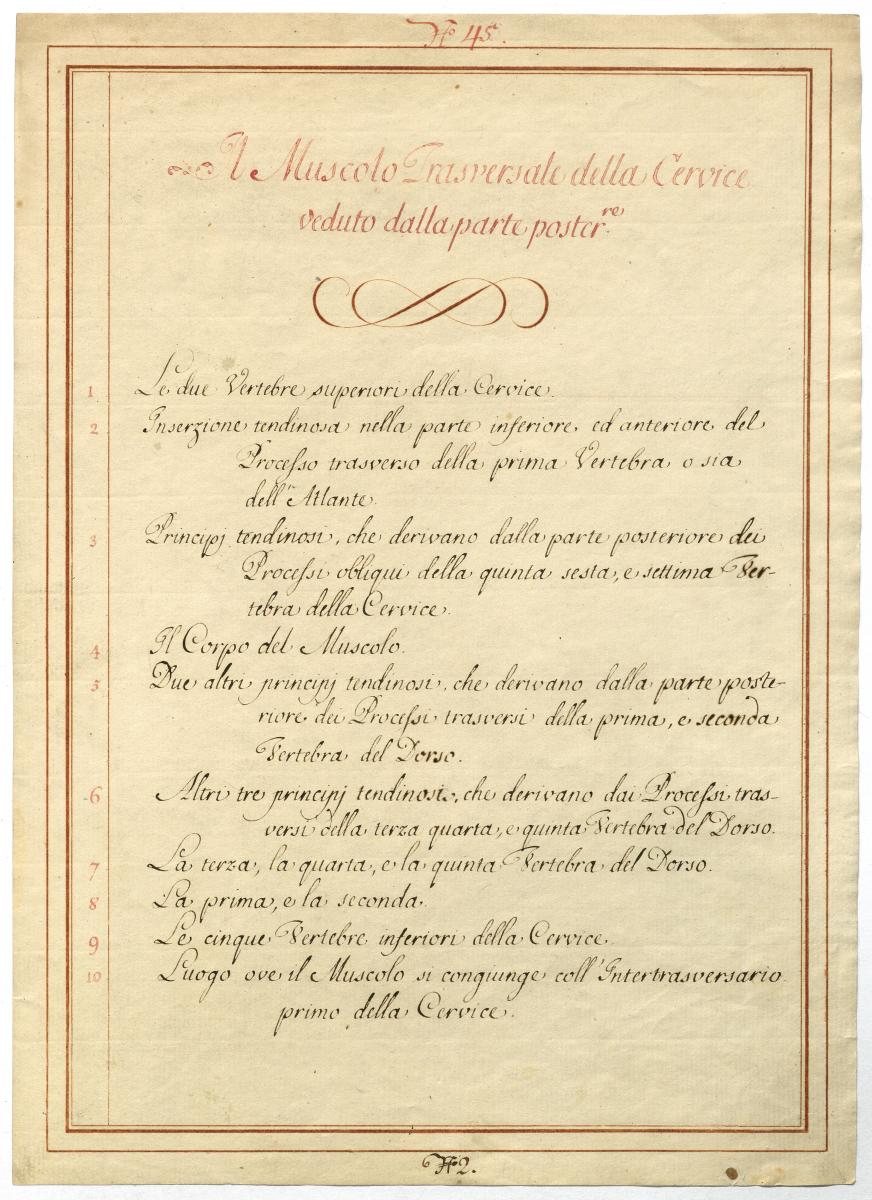 N.o 45.
Il Muscolo Trasversale della Cervice
veduto dalla parte poster.re
1 Le due Vertebre superiori della Cervice.
2 Inserzione tendinosa nella parte inferiore, ed anteriore del
Processo trasverso della prima Vertebra o sia
dell'Atlante.
3 Principj tendinosi, che derivano dalla parte posteriore dei
Processi obliqui della quinta sesta, e settima Ver-
tebra della Cervice.
4 Il Corpo del Muscolo.
5 Due altri principj tendinosi, che derivano dalla parte poste-
riore dei Processi trasversi della prima, e seconda
Vertebra del Dorso.
6 Altri tre principj tendinosi, che derivano dai Processi tras-
versi della terza quarta, e quinta Vertebra del Dorso.
7 La terza, la quarta, e la quinta Vertebra del Dorso.
8 La prima, e la seconda.
9 Le cinque Vertebre inferiori della Cervice.
10 Luogo ove il Muscolo si congiunge coll'Intertrasversario
primo della Cervice.
N.o 2.